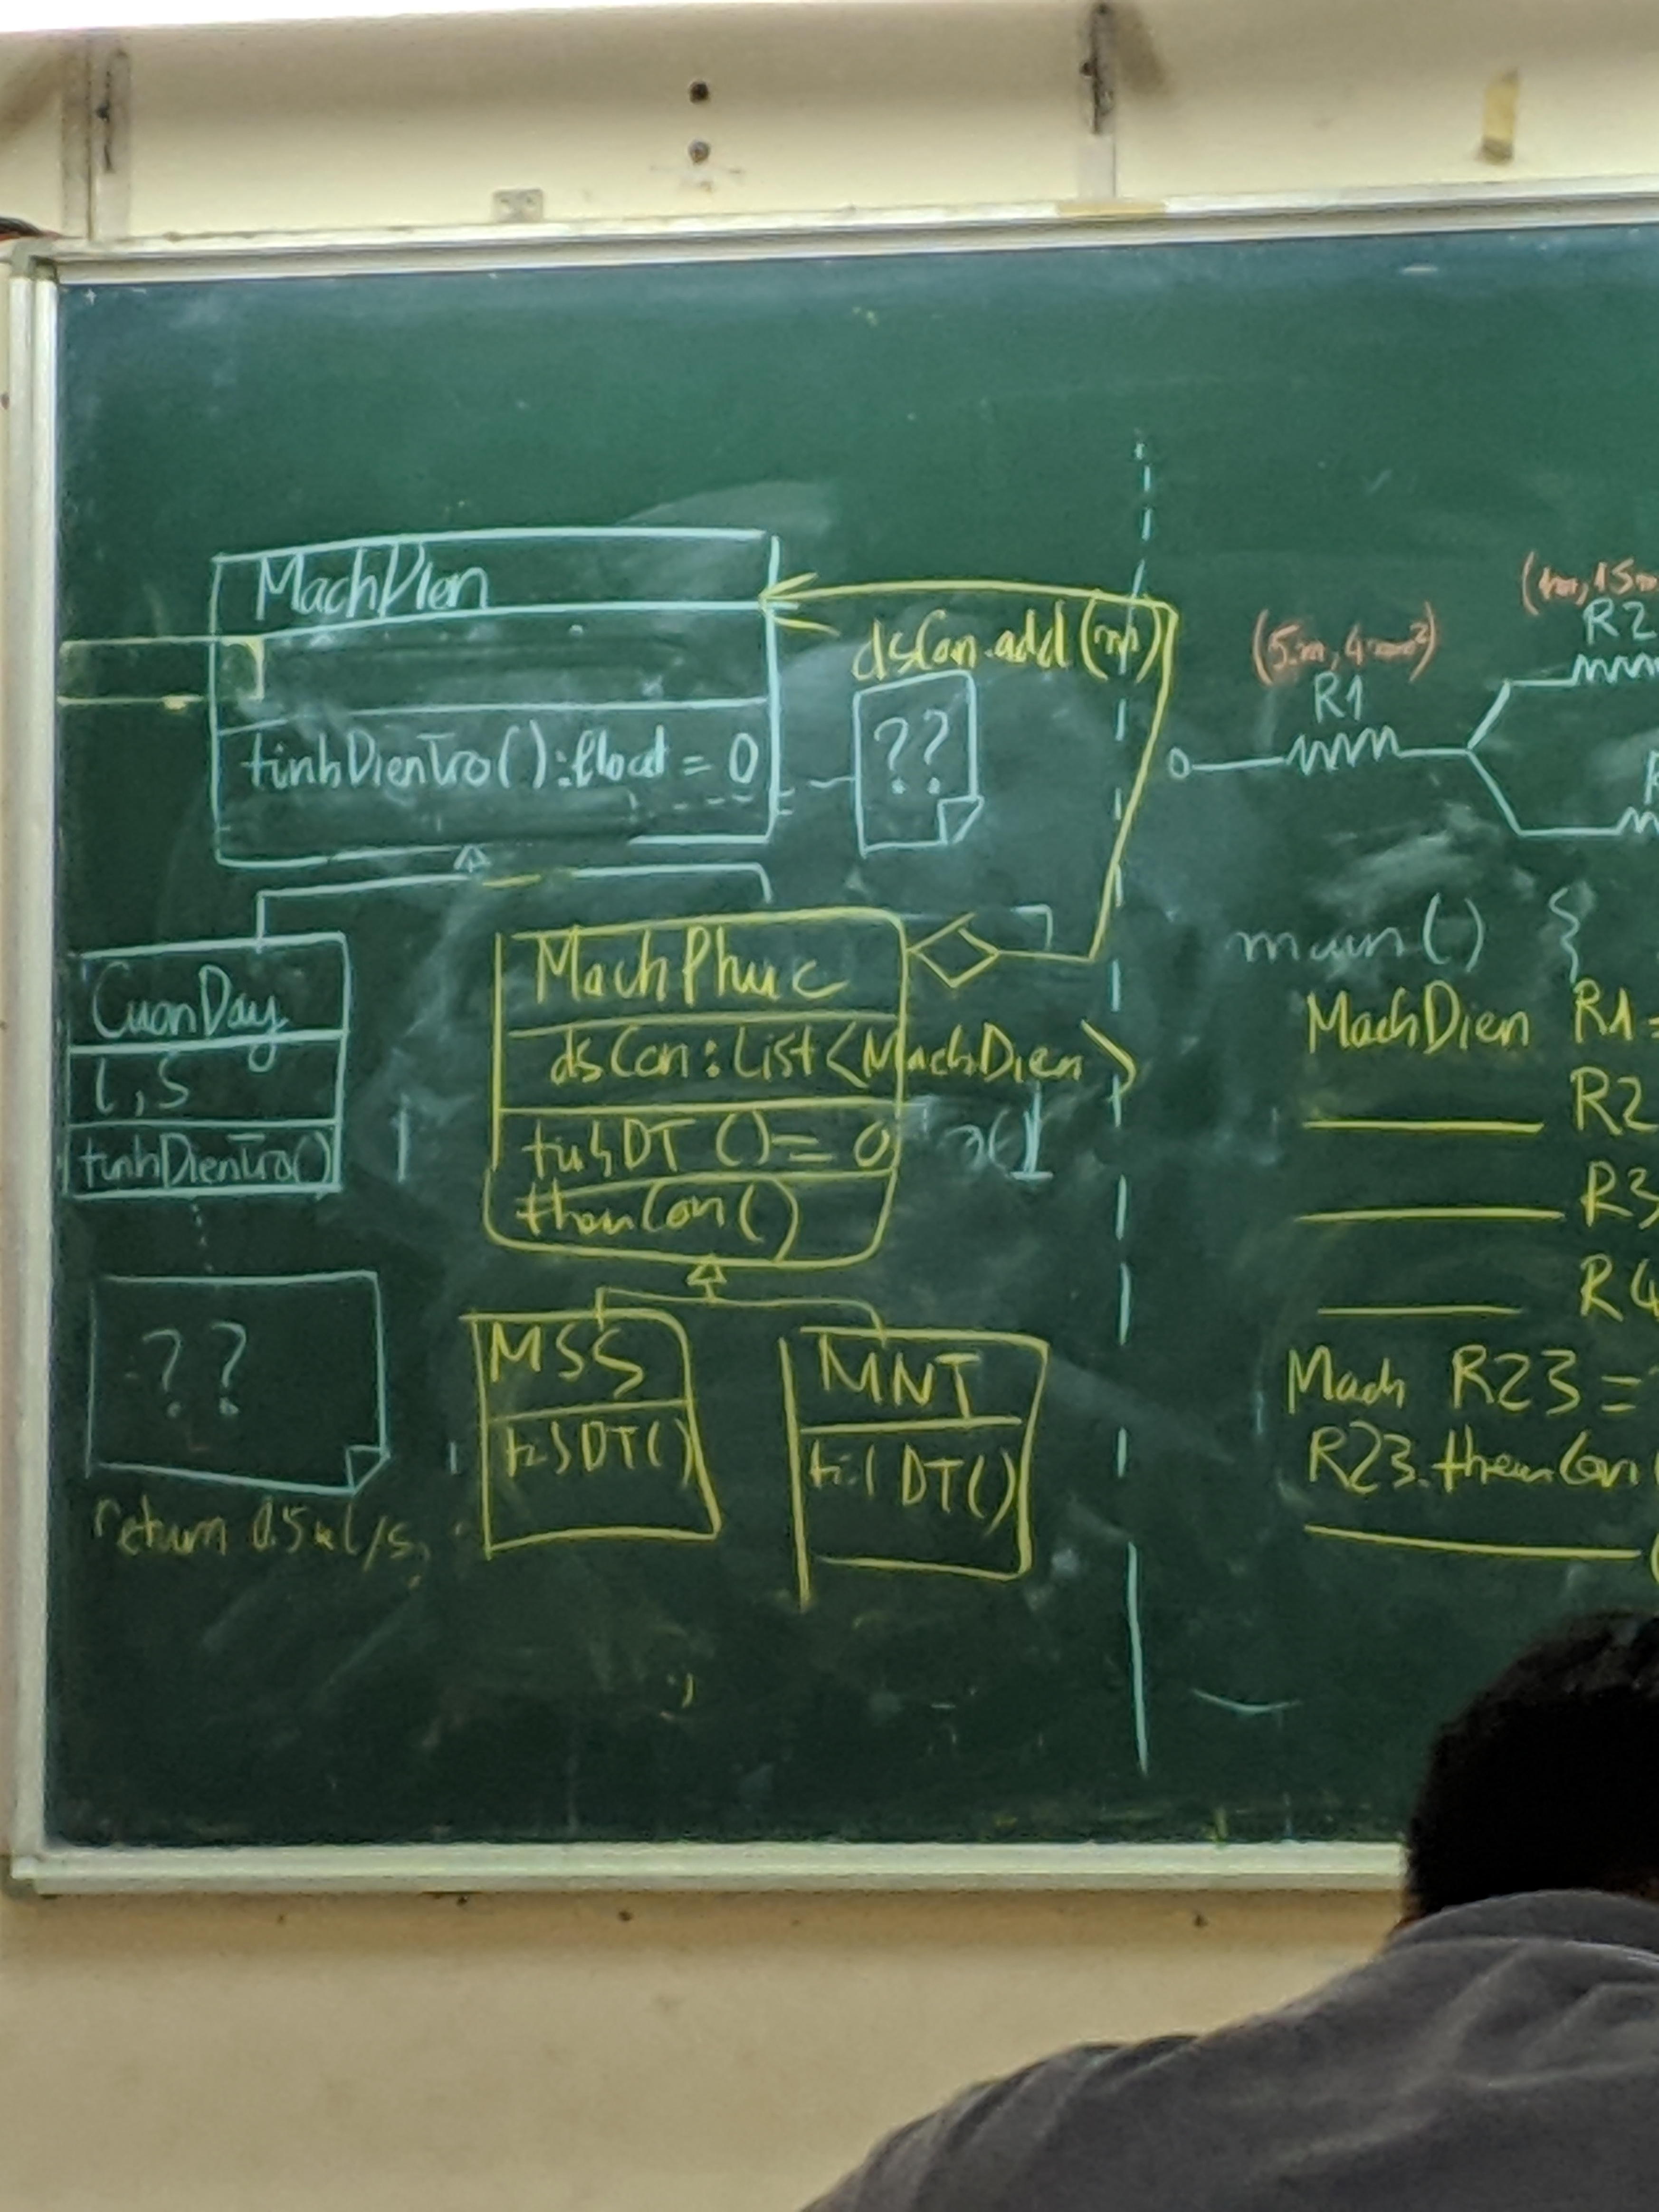 MachDien
tinhDienTro():float = 0
dsCon.add(m)
??
CuonDay
l, S
tinhDienTro()
??
return 0.5*l/s,
MachPhuc
dsCon: List<MachDien>
tinhDT () = 0
themCon()
MSS
tinhDT()
MNT
tinhDT()
(5m, 4mm²)
R1
R2
main() {
MachDien R1 =
R2
R3
R4
Mach R23 =
R23.themCon(